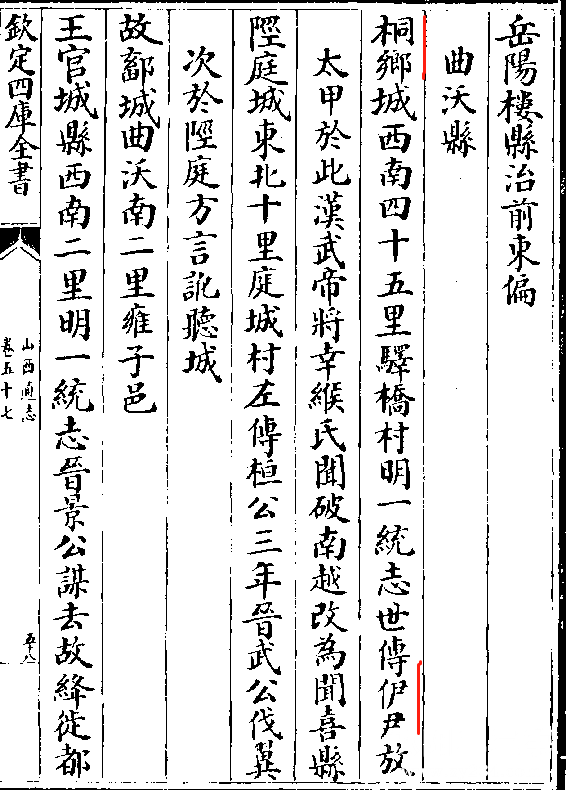 岳陽樓縣治前東偏
曲沃縣
桐鄉城西南四十五里驛橋村明一統志世傳伊尹放
太甲於此漢武帝將幸緱氏聞破南越改為聞喜縣
陘庭城東北十里庭城村左傳桓公三年晉武公伐翼
次於陘庭方言訛聽城
故鄐城曲沃南二里雍子邑
王官城縣西南二里明一統志晉景公謀去故絳徙都
欽定四庫全書
山西通志
卷五十七
五十八